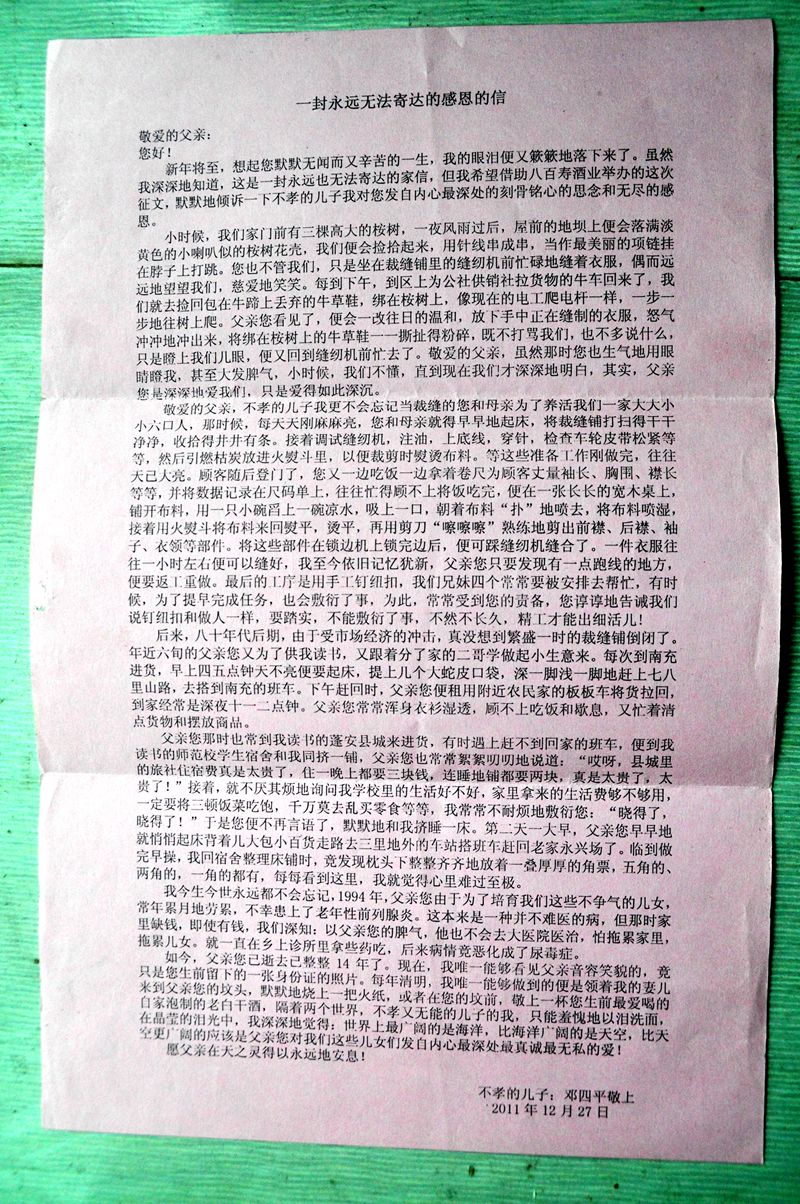 一封永远无法寄达的感恩的信
敬爱的父亲：
您好！
新年将至，想起您默默无闻而又辛苦的一生，我的眼泪便又簌簌地落下来了。虽然
我深深地知道，这是一封永远也无法寄达的家信，但我希望借助八百寿酒业举办的这次
征文，默默地倾诉一下不孝的儿子我对您发自内心最深处的刻骨铭心的思念和无尽的感
恩。
小时候，我们家门前有三棵高大的桉树，一夜风雨过后，屋前的地坝上便会落满淡
黄色的小喇叭似的桉树花壳，我们便会捡拾起来，用针线串成串，当作最美丽的项链挂
在脖子上打跳。您也不管我们，只是坐在裁缝铺里的缝纫机前忙碌地缝着衣服，偶而远
远地望望我们，慈爱地笑笑。每到下午，到区上为公社供销社拉货物的牛车回来了，我
们就去捡回包在牛蹄上丢弃的牛草鞋，绑在桉树上，像现在的电工爬电杆一样，一步一
步地往树上爬。父亲您看见了，便会一改往日的温和，放下手中正在缝制的衣服，怒气
冲冲地冲出来，将绑在桉树上的牛草鞋一一撕扯得粉碎，既不打骂我们，也不多说什么，
只是瞪上我们几眼，便又回到缝纫机前忙去了。敬爱的父亲，虽然那时您也生气地用眼
睛瞪我，甚至大发脾气，小时候，我们不懂，直到现在我们才深深地明白，其实，父亲
您是深深地爱我们，只是爱得如此深沉。
敬爱的父亲，不孝的儿子我更不会忘记当裁缝的您和母亲为了养活我们一家大大小
小六口人，那时候，每天天刚麻麻亮，您和母亲就得早早地起床，将裁缝铺打扫得干干
净净，收拾得井井有条。接着调试缝纫机，注油，上底线，穿针，检查车轮皮带松紧等
等，然后引燃枯炭放进火熨斗里，以便裁剪时熨烫布料。等这些准备工作刚做完，往往
天已大亮。顾客随后登门了，您又一边吃饭一边拿着卷尺为顾客丈量袖长、胸围、襟长
等等，并将数据记录在尺码单上，往往忙得顾不上将饭吃完，便在一张长长的宽木桌上，
铺开布料，用一只小碗舀上一碗凉水，吸上一口，朝着布料“扑”地喷去，将布料喷湿，
接着用火熨斗将布料来回熨平，烫平，再用剪刀“嚓嚓嚓”熟练地剪出前襟、后襟、袖
子、衣领等部件。将这些部件在锁边机上锁完边后，便可踩缝纫机缝合了。一件衣服往
往一小时左右便可以缝好，我至今依旧记忆犹新，父亲您只要发现有一点跑线的地方，
便要返工重做。最后的工序是用手工钉纽扣，我们兄妹四个常常要被安排去帮忙，有时
候，为了提早完成任务，也会敷衍了事，为此，常常受到您的责备，您谆谆地告诫我们
说钉纽扣和做人一样，要踏实，不能敷衍了事，不然不长久，精工才能出细活儿！
后来，八十年代后期，由于受市场经济的冲击，真没想到繁盛一时的裁缝铺倒闭了。
年近六旬的父亲您又为了供我读书，又跟着分了家的二哥学做起小生意来。每次到南充
进货，早上四五点钟天不亮便要起床，提上几个大蛇皮口袋，深一脚浅一脚地赶上七八
里山路，去搭到南充的班车。下午赶回时，父亲您便租用附近农民家的板板车将货拉回，
到家经常是深夜十一二点钟。父亲您常常浑身衣衫湿透，顾不上吃饭和歇息，又忙着清
点货物和摆放商品。
父亲您那时也常到我读书的蓬安县城来进货，有时遇上赶不到回家的班车，便到我
读书的师范校学生宿舍和我同挤一铺，父亲您也常常絮絮叨叨地说道：“哎呀，县城里
的旅社住宿费真是太贵了，住一晚上都要三块钱，连睡地铺都要两块，真是太贵了，太
贵了！”接着，就不厌其烦地询问我学校里的生活好不好，家里拿来的生活费够不够用，
一定要将三顿饭菜吃饱，千万莫去乱买零食等等，我常常不耐烦地敷衍您：“晓得了，
晓得了！”于是您便不再言语了，默默地和我挤睡一床。第二天一大早，父亲您早早地
就悄悄起床背着几大包小百货走路去三里地外的车站搭班车赶回老家永兴场了。临到做
完早操，我回宿舍整理床铺时，竟发现枕头下整整齐齐地放着一叠厚厚的角票，五角的、
两角的，一角的都有，每每看到这里，我就觉得心里难过至极。
我今生今世永远都不会忘记，1994年，父亲您由于为了培育我们这些不争气的儿女，
常年累月地劳累，不幸患上了老年性前列腺炎。这本来是一种并不难医的病，但那时家
里缺钱，即使有钱，我们深知：以父亲您的脾气，他也不会去大医院医治，怕拖累家里，
拖累儿女。就一直在乡上诊所里拿些药吃，后来病情竟恶化成了尿毒症。
如今，父亲您已逝去已整整14年了。现在，我唯一能够看见父亲音容笑貌的，竟
只是您生前留下的一张身份证的照片。每年清明，我唯一能够做到的便是领着我的妻儿
来到父亲您的坟头，默默地烧上一把火纸，或者在您的坟前，敬上一杯您生前最爱喝的
自家泡制的老白干酒，隔着两个世界，不孝又无能的儿子的我，只能羞愧地以泪洗面，
在晶莹的泪光中，我深深地觉得：世界上最广阔的是海洋，比海洋广阔的是天空，比天
空更广阔的应该是父亲您对我们这些儿女们发自内心最深处最真诚最无私的爱！
愿父亲在天之灵得以永远地安息！
不孝的儿子：邓四平敬上
2011年12月27日